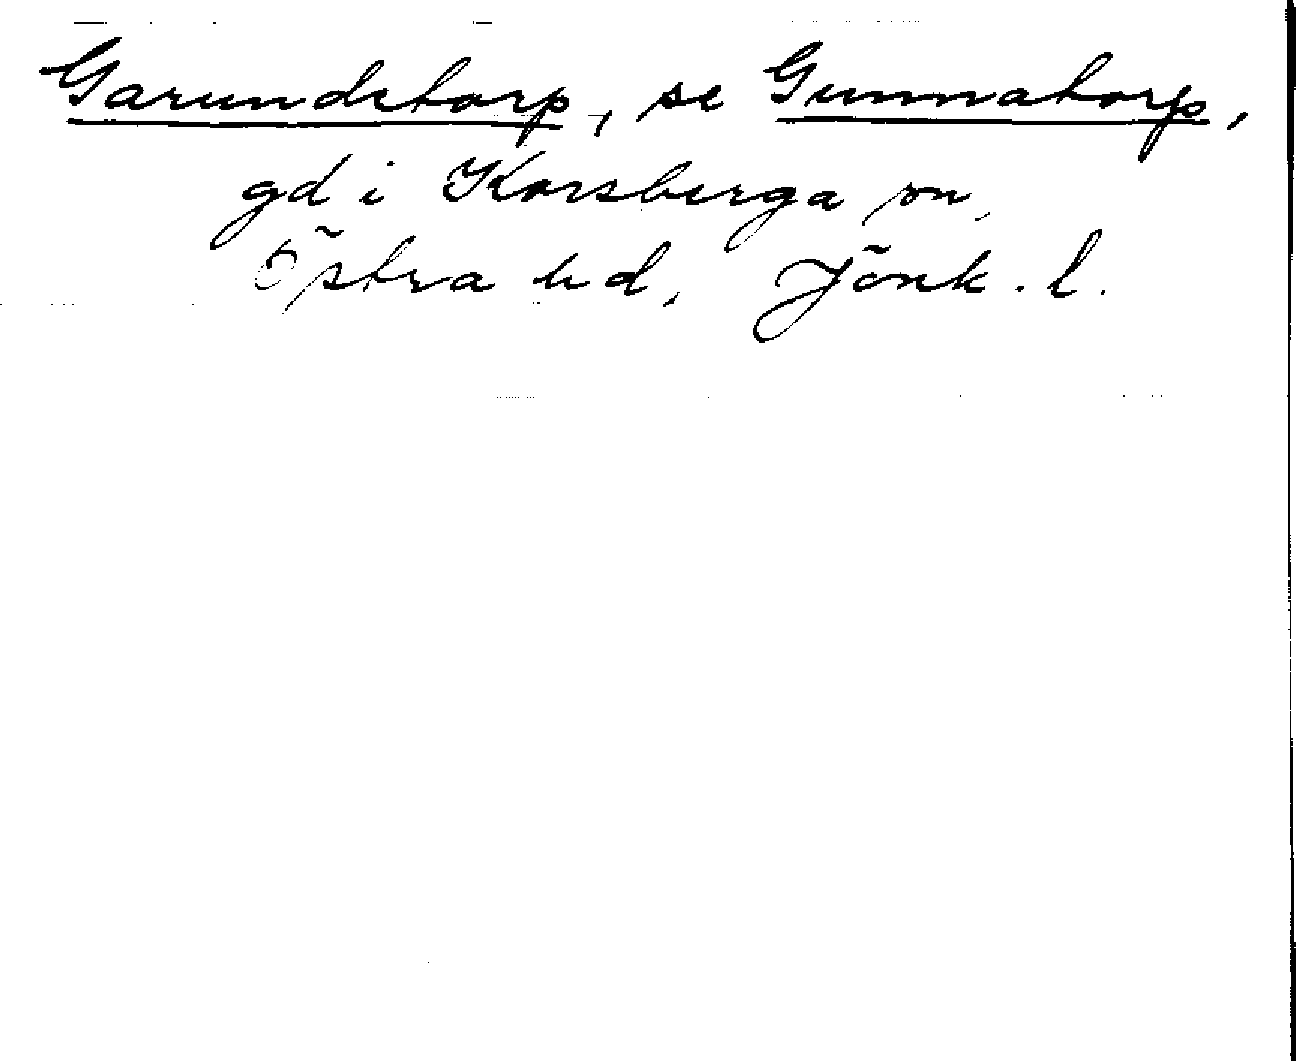 Garundetorp, se Gunnatorp,
gd i Korsberga sn,
Östra hd, Jönk. l.